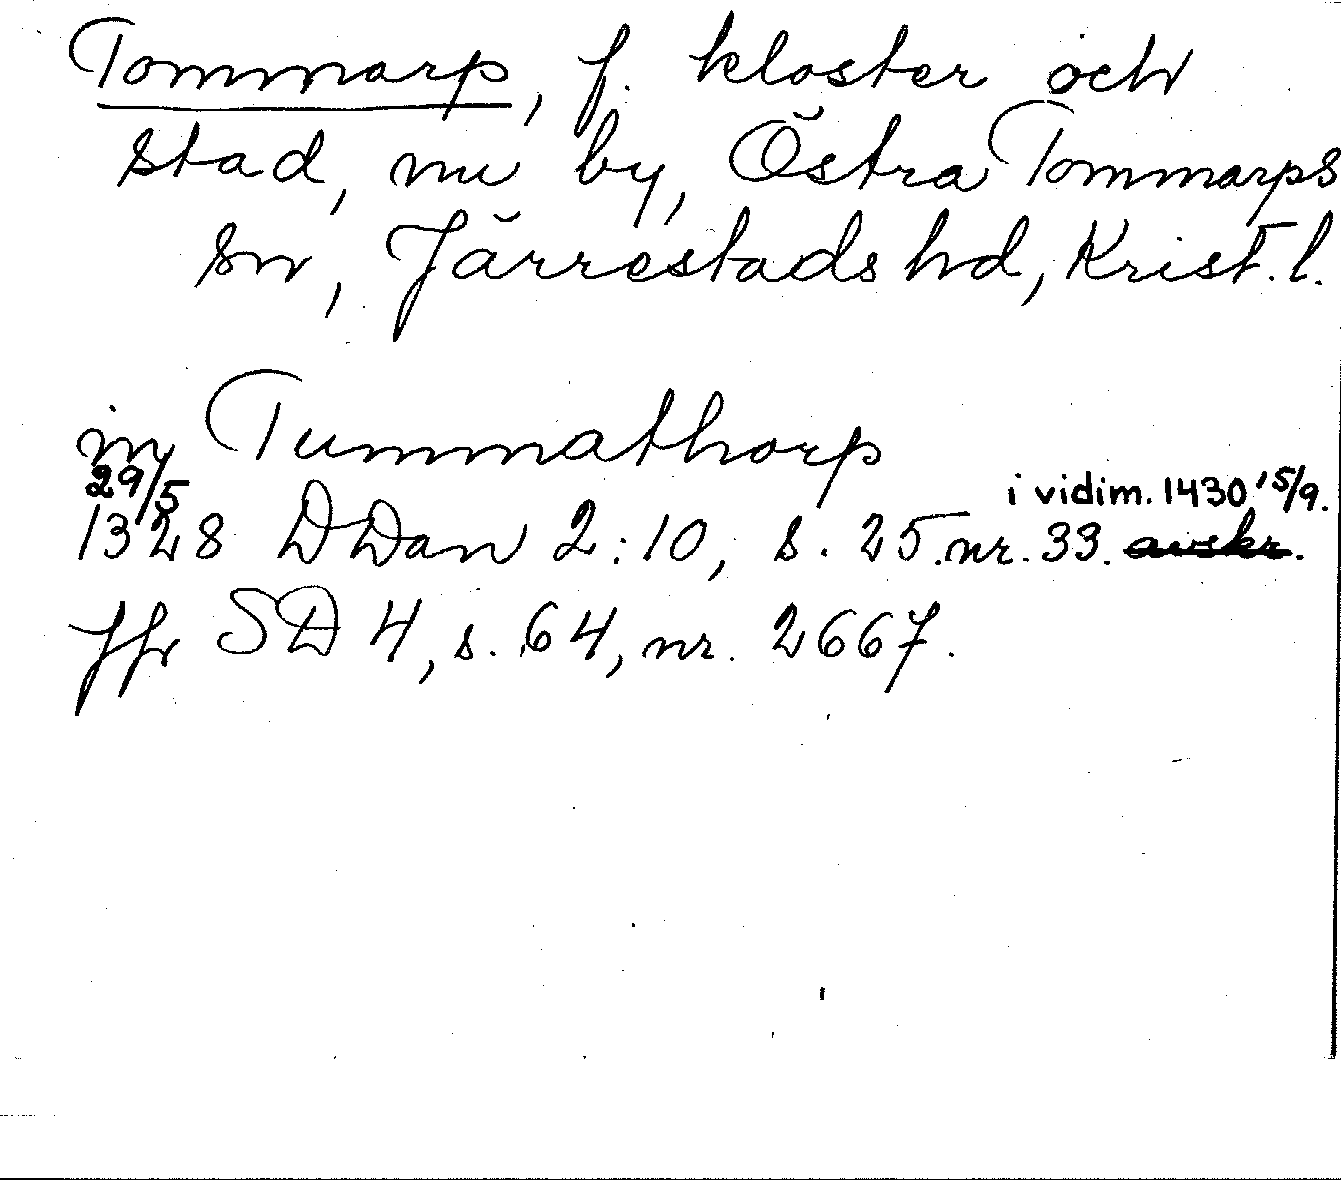 Tommarp, f. kloster och
stad, nu by, Östra Tommarps
sn, Järrestads hd, Krist. l.
in Tummathorp
29/5 i vidim. 1430 15/9.
1328 DDan 2:10, s. 25. nr. 33. avskr.
Jfr SD 4, s. 64, nr. 2667.